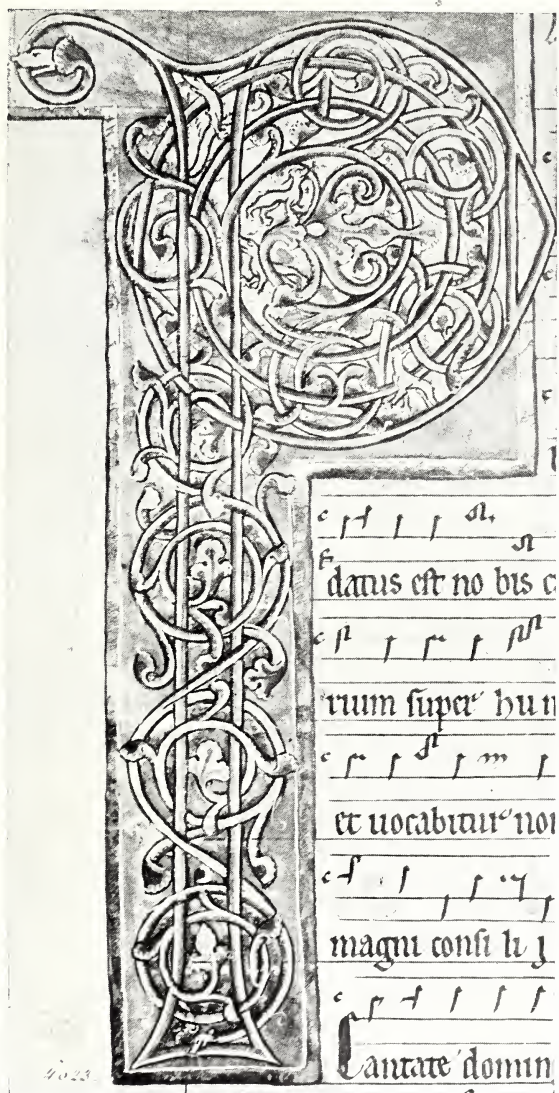 P
datus est no bis c
rium super hum
et uocabitur nom
magni consi li
Cantate domin
4023